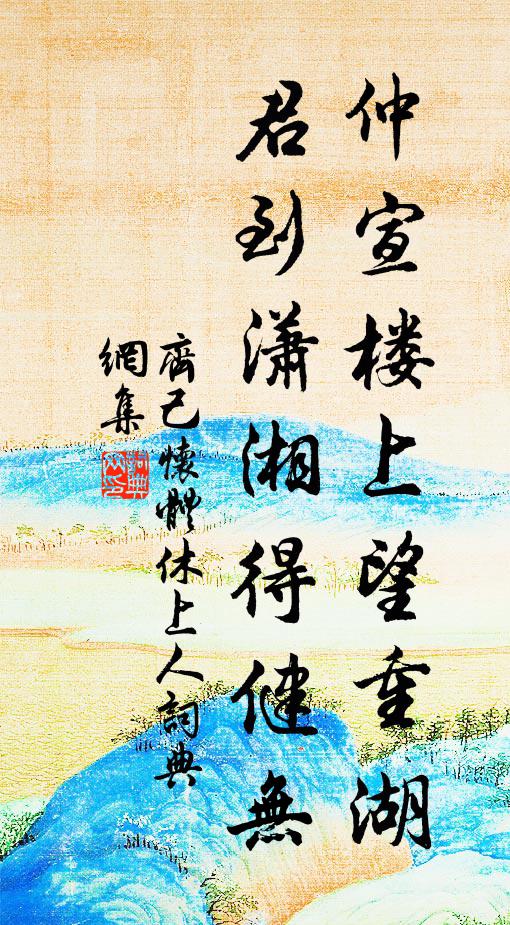 仲宣楼上望重湖
君到瀟湘得健無
齊己懷體休上人詞典
網集